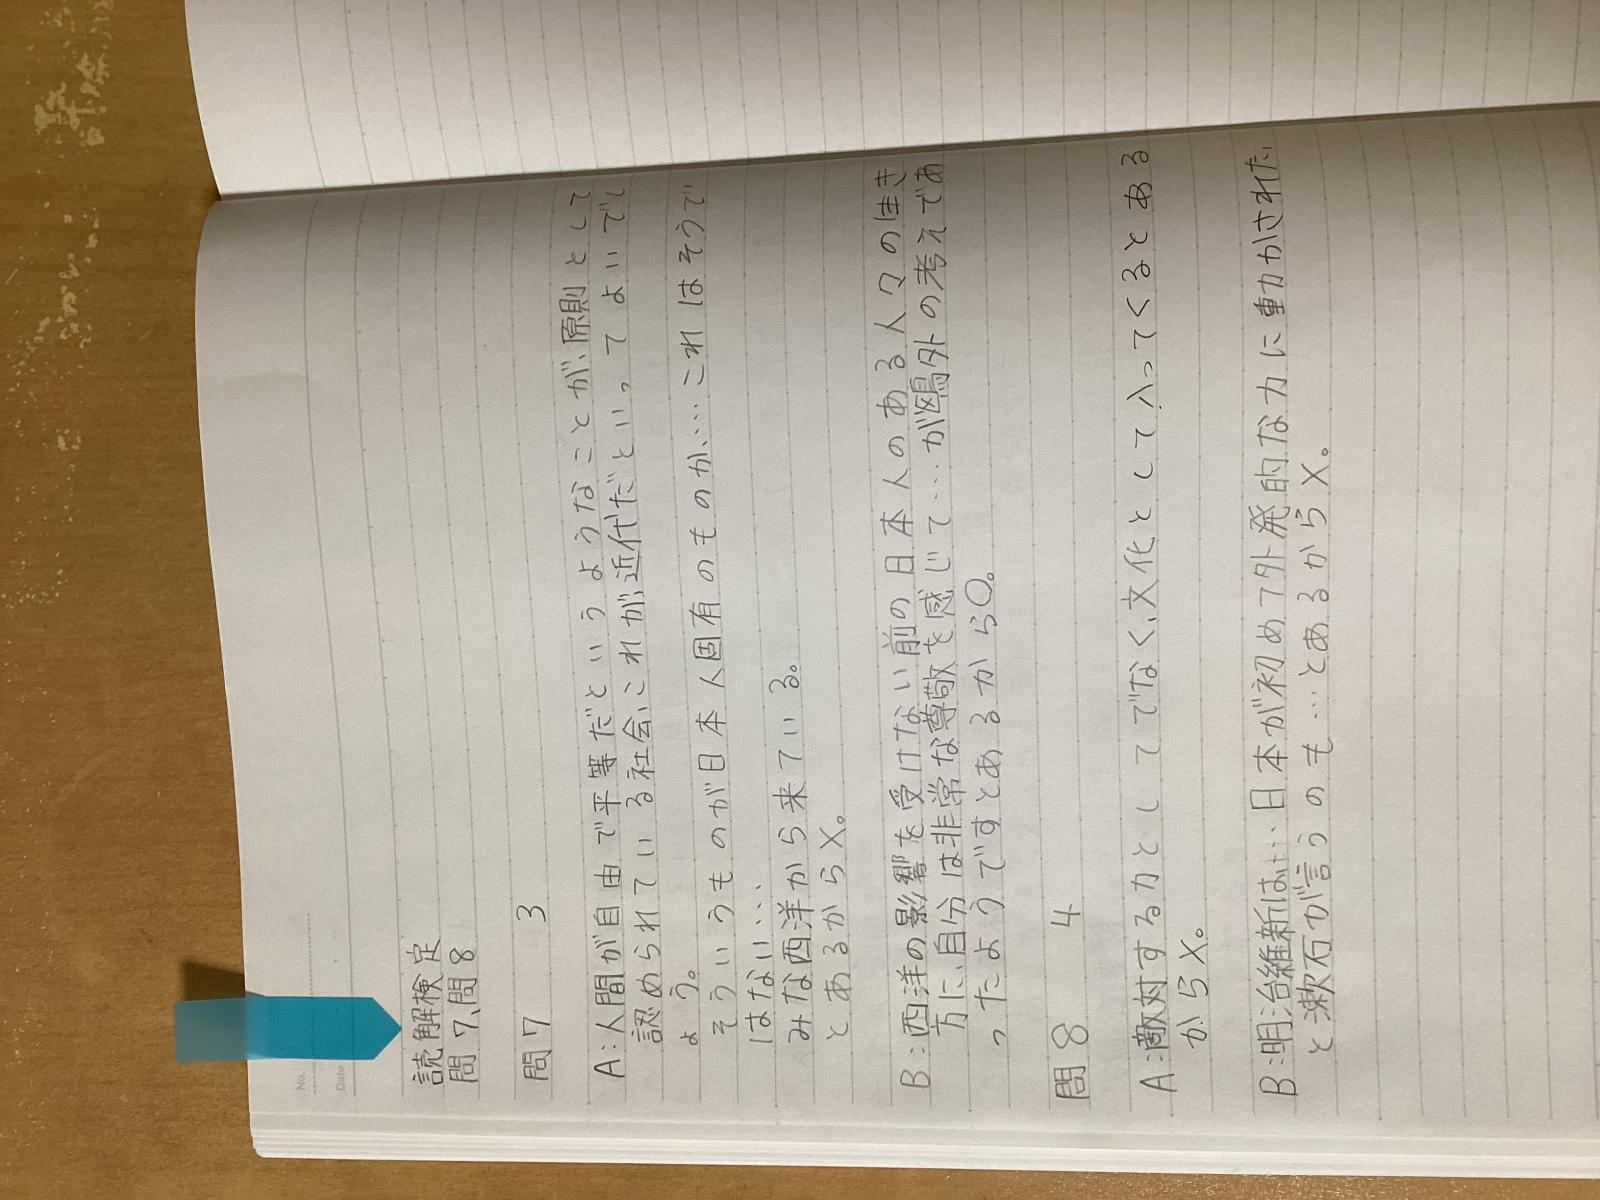 No.
Date
読解検定
問7、問8
問7 3
A:人間が自由で平等だというようなことが、原則として
認められている社会、これが、近代だといってよいでし
ょう。
そういうものが日本人固有のものか、…これはそうで
はない…
みな西洋から来ている。
とあるから×。
B:西洋の影響を受けない前の日本人のある人々の生き
方に、自分は非常な尊敬を感じて…が鴎外の考えであ
ったようですとあるから○。
問8 4
A:敵対する力としてでなく、文化として入ってくるとある
から×。
B:明治維新は、…日本が初めて外発的な力に動かされた
と漱石が言うのも…とあるから×。